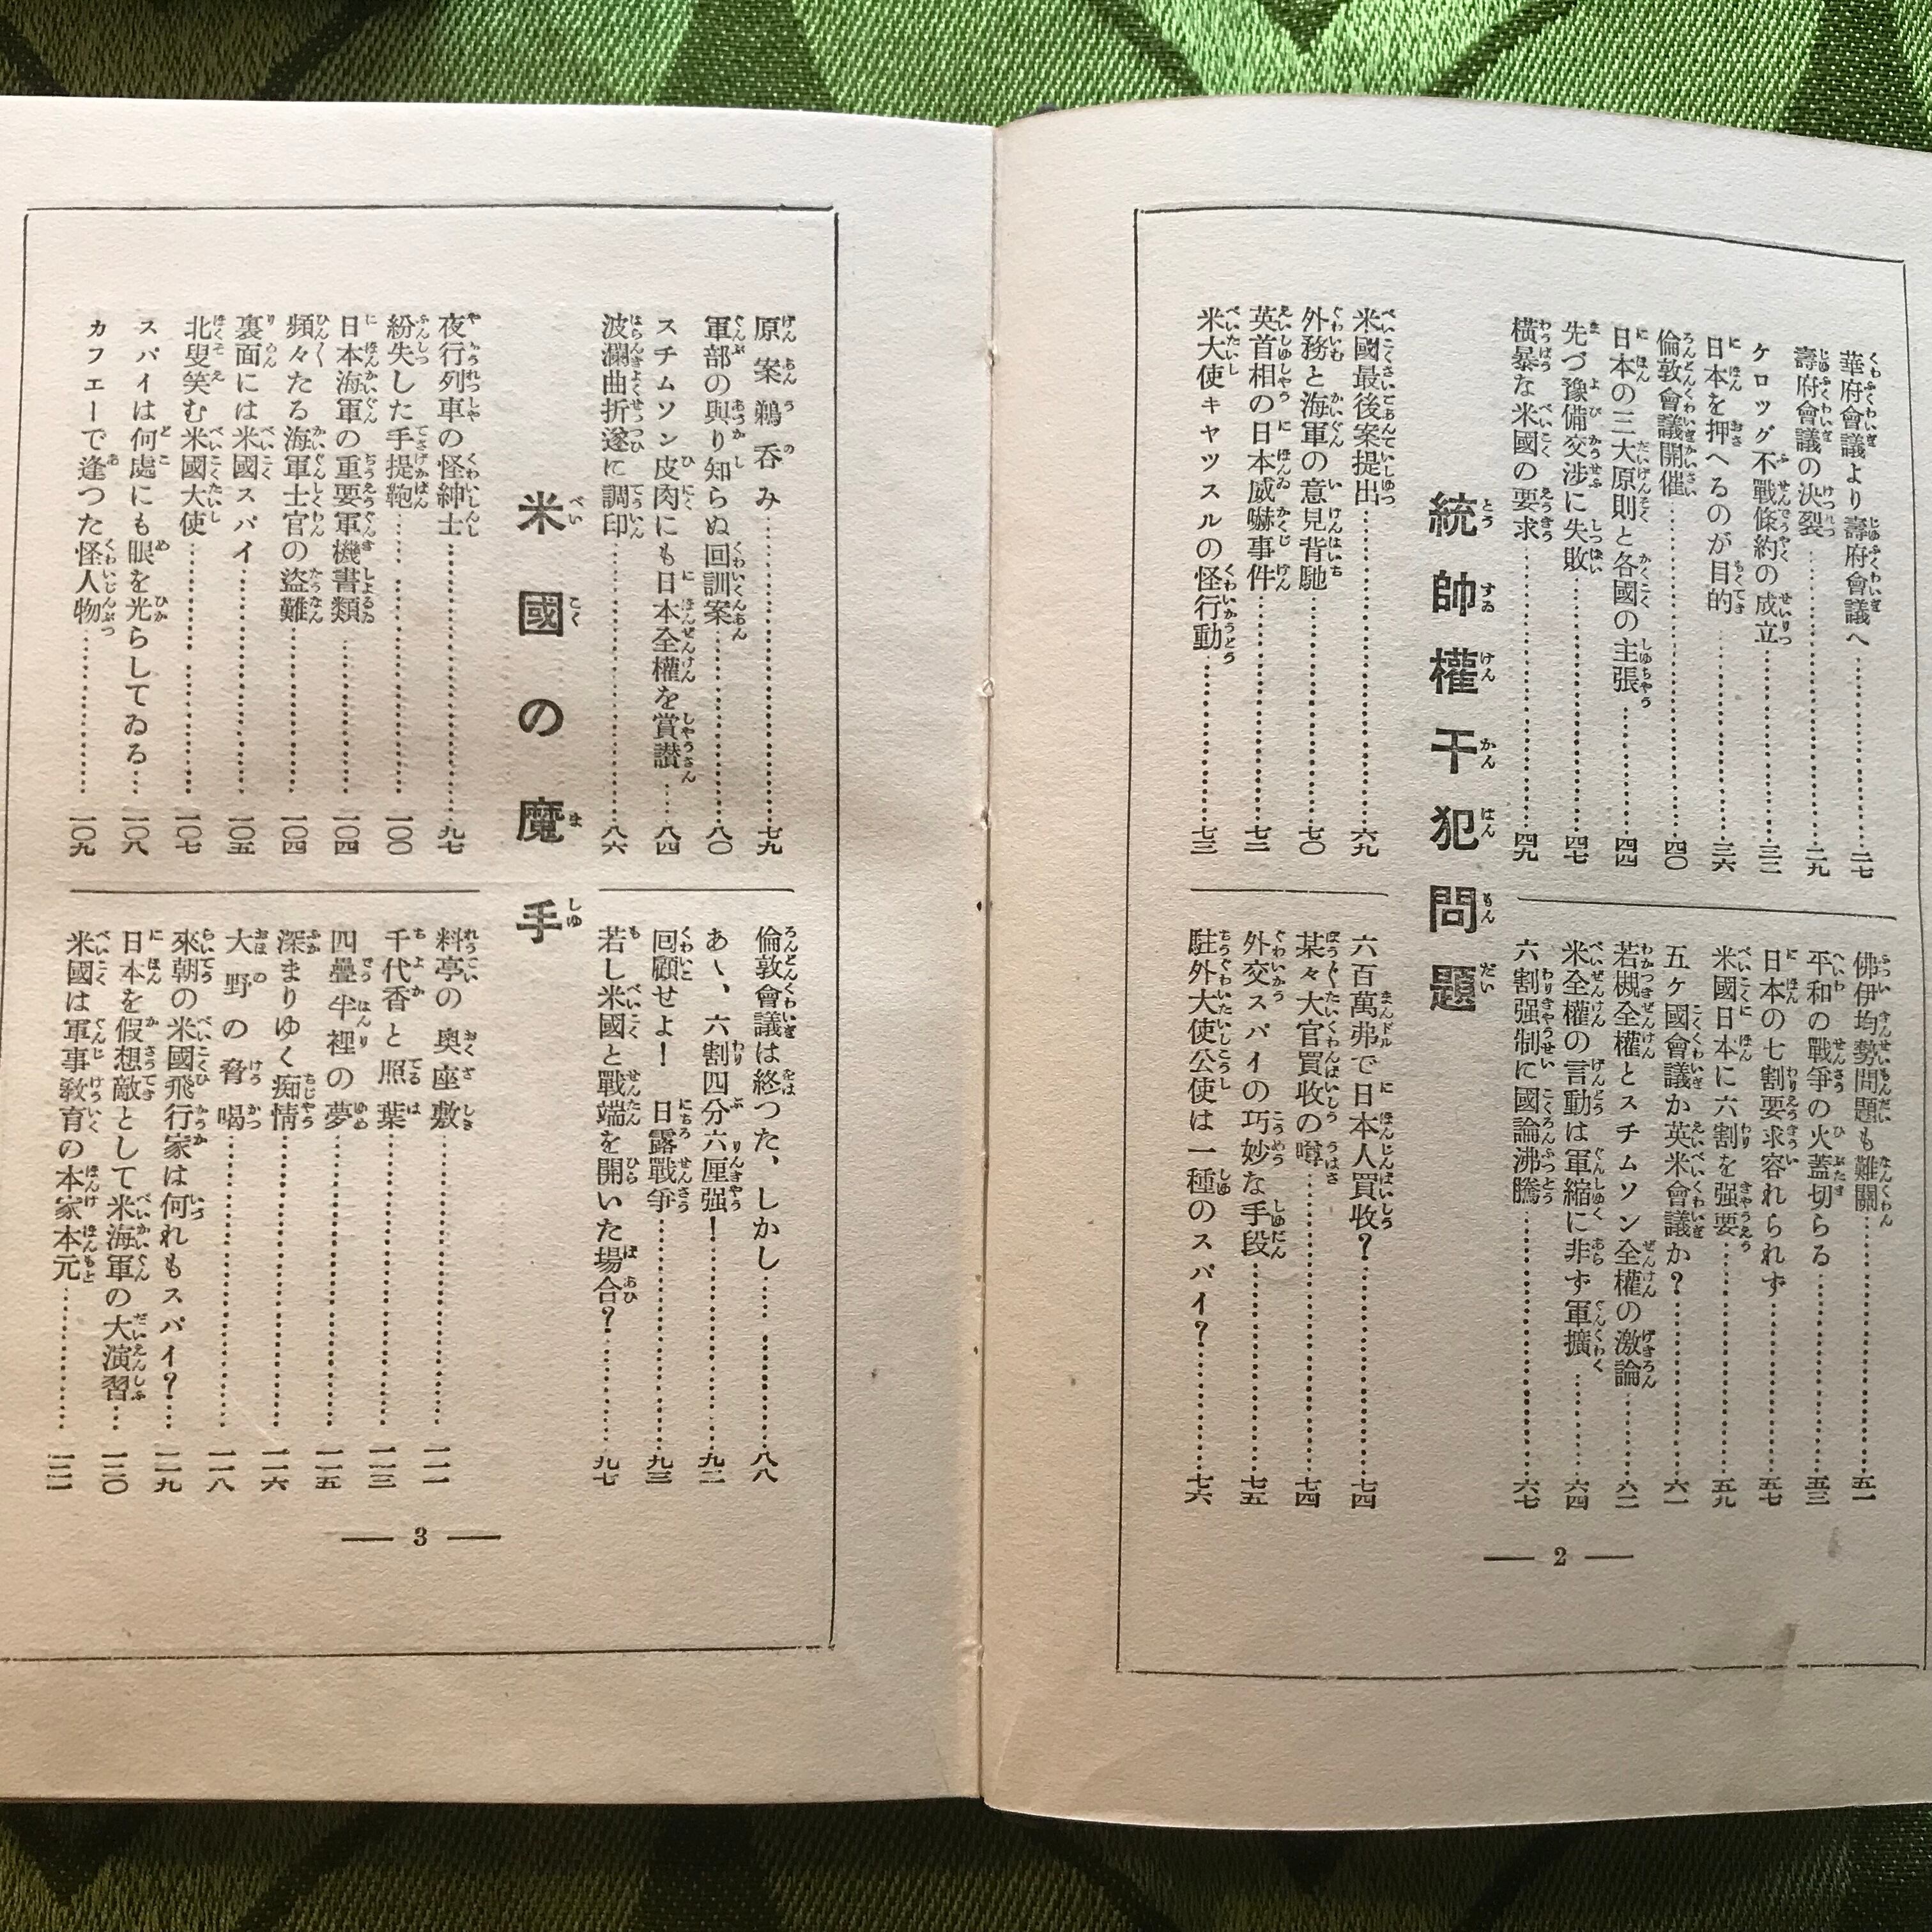 華府會議より壽府會議へ…………二七
壽府會議の決裂…………二九
ケロッグ不戰條約の成立…………三二
日本を押へるのが目的…………三六
倫敦會議開催…………四〇
日本の三大原則と各國の主張…………四四
先づ豫備交渉に失敗…………四七
橫暴な米國の要求…………四九
佛伊均勢問題も難關…………五一
平和の戰爭の火蓋切らる…………五三
日本の七割要求容れられず…………五七
米國日本に六割を强要…………五九
五ヶ國會議か英米會議か?…………六一
若槻全權とスチムソン全權の激論…………六二
米全權の言動は軍縮に非ず軍擴…………六四
六割强制に國論沸騰…………六七
統帥權干犯問題
米國最後案提出…………六九
外務と海軍の意見背馳…………七〇
英首相の日本威嚇事件…………七二
米大使キャツスルの怪行動…………七三
六百萬弗で日本人買收?…………七四
某々大官買收の噂…………七四
外交スパイの巧妙な手段…………七五
駐外大使公使は一種のスパイ?…………七六
— 2 —
原案鵜呑み…………七九
軍部の與り知らぬ回訓案…………八〇
スチムソン皮肉にも日本全權を賞讃……八四
波瀾曲折遂に調印…………八六
倫敦會議は終つた、しかし…………八八
あゝ、六割四分六厘强!…………九二
回顧せよ! 日露戰爭…………九三
若し米國と戰端を開いた場合?…………九七
米國の魔手
夜行列車の怪紳士…………九七
紛失した手提鞄…………一〇〇
日本海軍の重要軍機書類…………一〇四
頻々たる海軍士官の盜難…………一〇四
裏面には米國スパイ…………一〇五
北叟笑む米國大使…………一〇七
スパイは何處にも眼を光らしてゐる……一〇八
カフエーで逢つた怪人物…………一〇九
料亭の奧座敷…………一一一
千代香と照葉…………一一三
四疊半裡の夢…………一一五
深まりゆく痴情…………一一六
大野の脅喝…………一一八
來朝の米國飛行家は何れもスパイ?……一一九
日本を假想敵として米海軍の大演習……一二〇
米國は軍事敎育の本家本元…………一二二
— 3 —